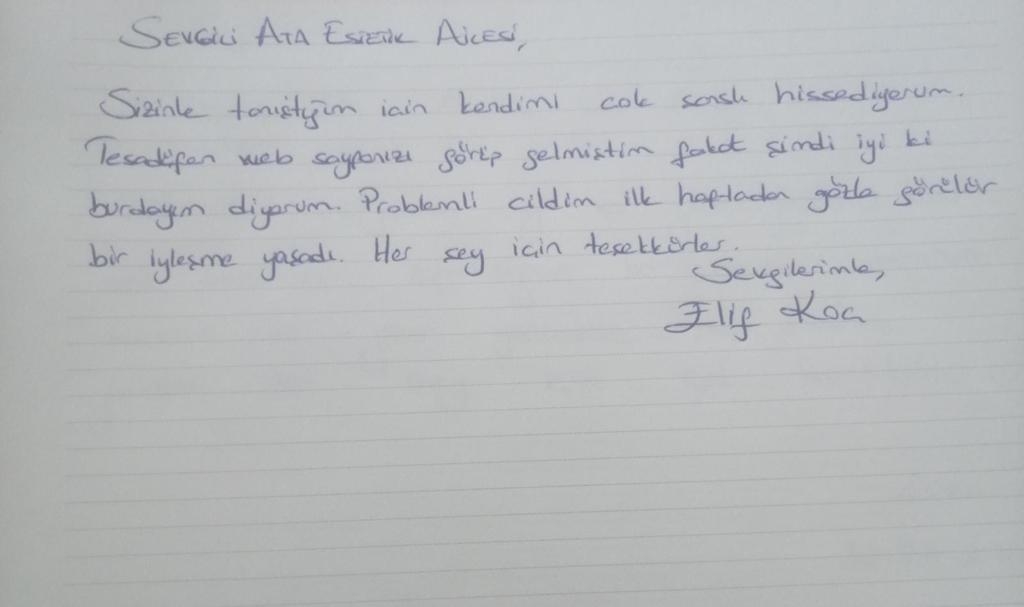 SEVGİLİ ATA ESTETİK AİLESİ,
Sizinle tanıştığım için kendimi çok şanslı hissediyorum.
Tesadüfen web sayfanızı görüp gelmiştim fakat şimdi iyi ki
burdayım diyorum. Problemli cildim ilk haftadan gözle görülür
bir iyleşme yaşadı. Her şey için teşekkürler.
Sevgilerimle,
Elif Koca